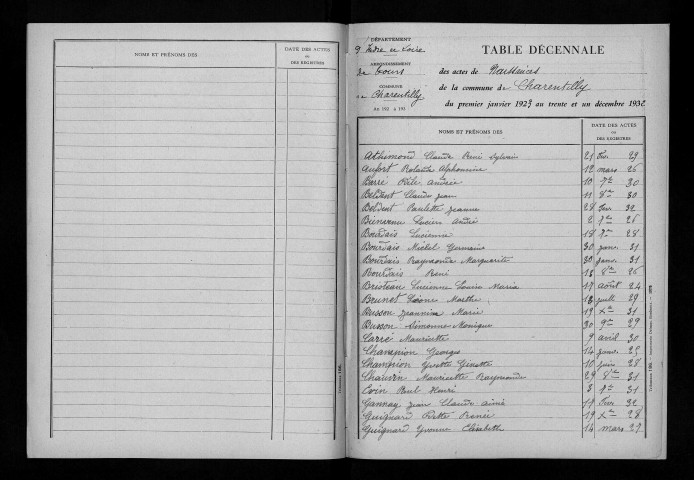 NOMS ET PRÉNOMS DES
DATE DES ACTES
OU
DES REGISTRES
DÉPARTEMENT
d'Indre et Loire
ARRONDISSEMENT
de Tours
COMMUNE
de Charentilly
An 192 à 193
TABLE DÉCENNALE
des actes de Naissances
de la commune de Charentilly
du premier janvier 1923 au trente et un décembre 1932
NOMS ET PRÉNOMS DES
DATE DES ACTES
OU
DES REGISTRES
Claude René Sylvain 21 Fev 29
Aufort Rolande Alphonsine 12 mars 26
Barré Andrée 10 7bre 30
Beldent Claude Jean 11 8bre 30
Beldent Paulette Jeanne 28 Fev 32
Bienvenu Lucien André 2 7bre 26
Bourdais Lucienne 18 7bre 28
Bourdais Michel Germain 30 janv. 31
Bourdais Raymonde Marguerite 30 janv. 31
Bourdais René 13 8bre 26
Lucienne Louise Maria 17 août 24
Brunet Marthe 13 juill 29
Busson Jeannine Marie 19 Xbre 31
Busson Simonne Monique 30 9bre 29
Carré Mauricette 9 avril 30
Champion Georges 14 janv. 25
Champion Yvette Ginette 10 juin 28
Chauvin Mauricette Raymonde 29 8bre 31
Paul Henri 3 8bre 31
Gannay Jean Claude Aimé 17 Fev 32
Guignard Renée 19 Xbre 28
Guignard Yvonne Elisabeth 14 mars 27